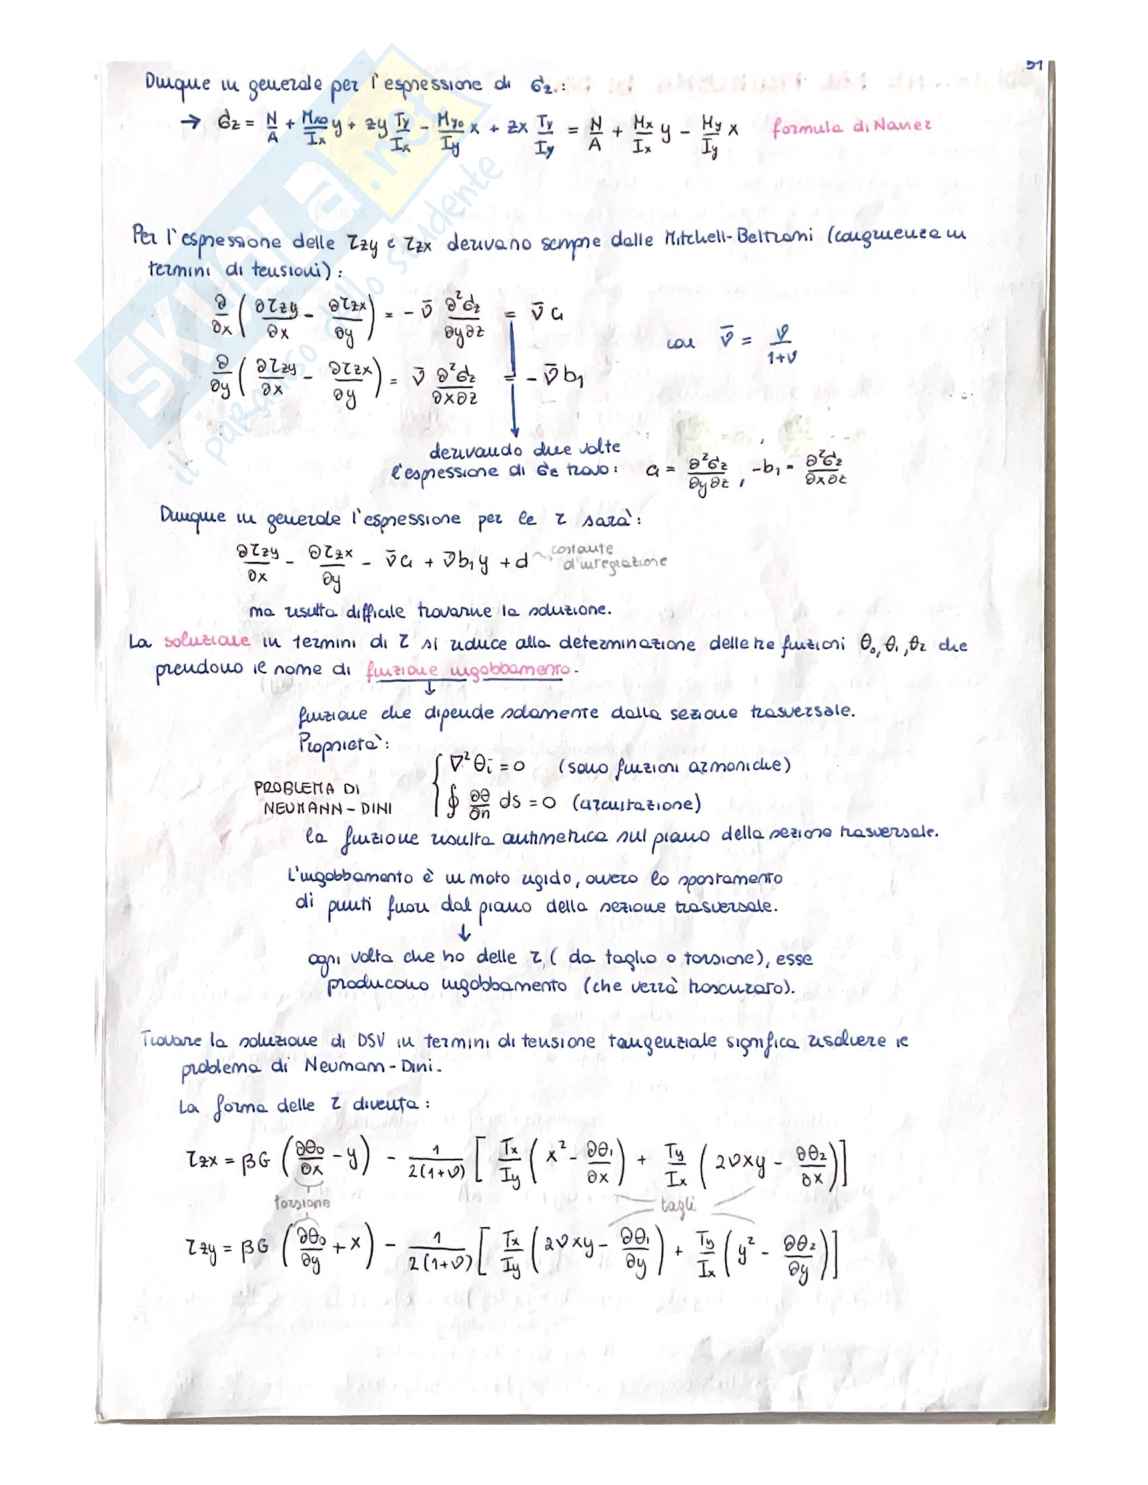 51
Dunque in generale per l'espressione di σz:
→ σz = N/A + Mxo/Ix y + zy Ty/Ix - Myo/Iy x + zx Ty/Iy = N/A + Mx/Ix y - My/Iy x formula di Navier
Per l'espressione delle τzy e τzx derivano sempre dalle Mitchell-Beltrami (congruenza in
termini di tensioni):
∂/∂x (∂τzy/∂x - ∂τzx/∂y) = - ν̄ ∂²σz/∂y∂z = ν̄ a
con ν̄ = ν/1+ν
∂/∂y (∂τzy/∂x - ∂τzx/∂y) = ν̄ ∂²σz/∂x∂z = - ν̄ b₁
derivando due volte
l'espressione di σz trovo: a = ∂²σz/∂y∂z , -b₁ = ∂²σz/∂x∂z
Dunque in generale l'espressione per le τ sarà:
∂τzy/∂x - ∂τzx/∂y - ν̄a + ν̄b₁y + d costante
d'integrazione
ma risulta difficile trovarne la soluzione.
La soluzione in termini di τ si riduce alla determinazione delle tre funzioni θ₀, θ₁, θ₂ che
prendono il nome di funzione ingobbamento.
↓
funzione che dipende solamente dalla sezione trasversale.
Proprietà:
∇²θi = 0 (sono funzioni armoniche)
PROBLEMA DI
NEUMANN-DINI
∮ ∂θ/∂n ds = 0 (circuitazione)
la funzione risulta antimetrica sul piano della sezione trasversale.
L'ingobbamento è un moto rigido, ovvero lo spostamento
di punti fuori dal piano della sezione trasversale.
↓
ogni volta che ho delle τ, (da taglio o torsione), esse
producono ingobbamento (che verrà trascurato).
Trovare la soluzione di DSV in termini di tensione tangenziale significa risolvere il
problema di Neumann-Dini.
La forma delle τ diventa:
τzx = βG (∂θ₀/∂x - y) - 1/2(1+ν) [Tx/Iy (x² - ∂θ₁/∂x) + Ty/Ix (2νxy - ∂θ₂/∂x)]
torsione tagli
τzy = βG (∂θ₀/∂y + x) - 1/2(1+ν) [Tx/Iy (2νxy - ∂θ₁/∂y) + Ty/Ix (y² - ∂θ₂/∂y)]
SKUOLA.net
il paradiso dello studente